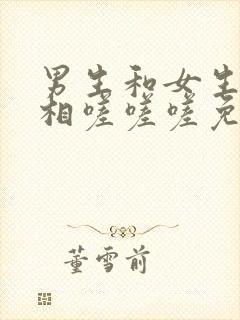 男生和女生
相嗟嗟嗟免
董雪前